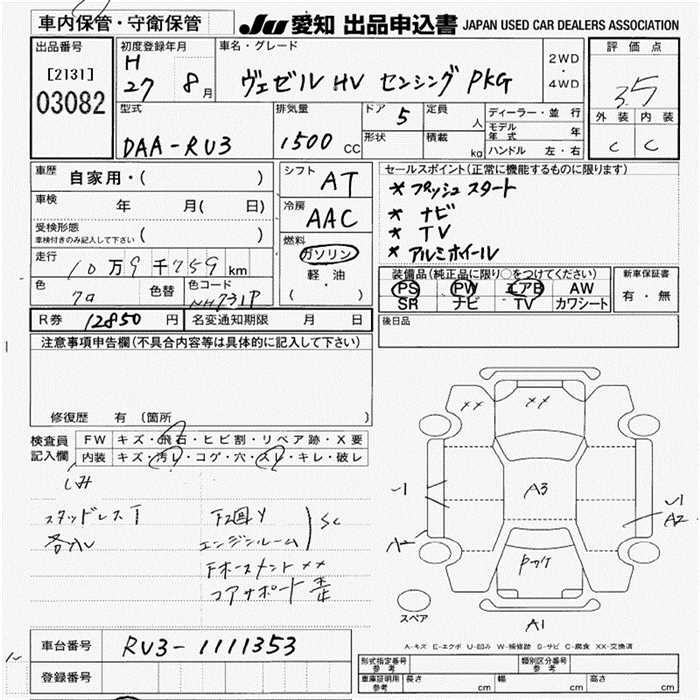 車内保管・守衛保管
JU 愛知 出品申込書 JAPAN USED CAR DEALERS ASSOCIATION
出品番号 初度登録年月 車名・グレード 評価点
[2131] H 2WD
03082 27 8月 ヴェゼル HV センシング PKG ・ 3.5
4WD
型式 排気量 ドア 5 定員 人 ディーラー・並行 外装 内装
モデル年式 年
DAA-RU3 1500 CC 形状 積載 kg ハンドル 左・右 C C
車歴 自家用・( ) シフト AT セールスポイント(正常に機能するものに限ります)
車検 年 月( 日) 冷房 AAC * プッシュスタート
* ナビ
受検形態 ( ) * TV
車検付きのみ記入して下さい 燃料 * アルミホイール
走行 10万9千759km ガソリン
軽油
( ・ )
装備品(純正品に限り○をつけてください) 新車保証書
色 色替 色コード NH731P PS PW エアB AW 有・無
SR ナビ TV カワシート
R券 12850円 名変通知期限 月 日 後日品
注意事項申告欄(不具合内容等は具体的に記入して下さい)
修復歴 有 (箇所 )
検査員 FW キズ・飛石・ヒビ割・リペア跡・X要
記入欄 内装 キズ・汚レ・コゲ・穴・スレ・キレ・破レ
シミ
スタッドレス
エンジンルーム SC
コアサポート
XX XX
A3
A2
A1
スペア
A-キズ E-エクボ U-凹み W-補修跡 S-サビ C-腐食 XX-交換済
車台番号 RU3-1111353
登録番号
形式指定番号 参考 類別区分番号 参考
車庫証明用 参考 長さ cm 幅 cm 高さ cm